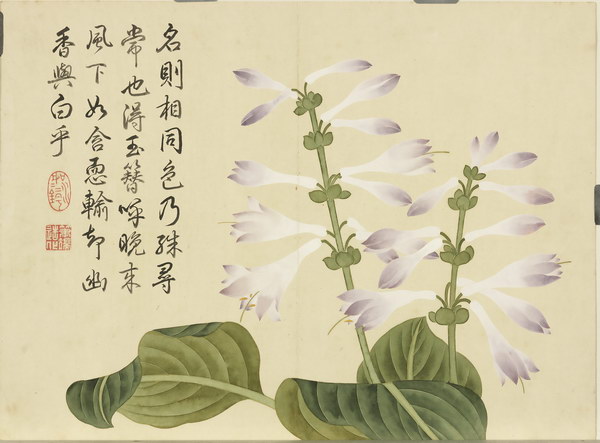 名則相同色乃殊尋
常也得玉簪呼晚来
風下如含恧輸却幽
香與白乎